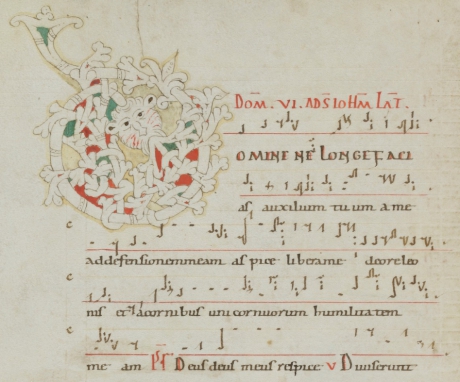 DOM̄. VI. AD S̄ IOH̄M. LAT.
DOMINE NE LONGE FACI
as auxilium tuum a me
ad defensionem meam aspice libera me deore leo
nis et a cornibus unicornuorum humilitatem
me am Ps̄ Deus deus meus respice V Diuiserunt